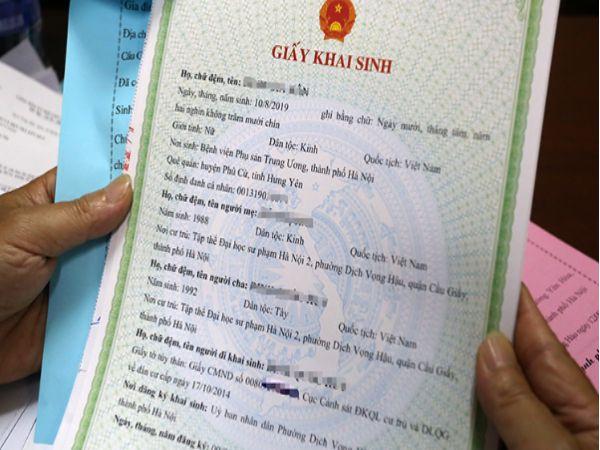 Gia đì
Địa ch
Cầu G
Đã c
Sinh
GIẤY KHAI SINH
Họ, chữ đệm, tên:
Ngày, tháng, năm sinh: 10/8/2019 ghi bằng chữ: Ngày mười, tháng tám, năm
hai nghìn không trăm mười chín
Giới tính: Nữ Dân tộc: Kinh Quốc tịch: Việt Nam
Nơi sinh: Bệnh viện Phụ sản Trung Ương, thành phố Hà Nội
Quê quán: huyện Phù Cừ, tỉnh Hưng Yên
Số định danh cá nhân: 0013190
Họ, chữ đệm, tên người mẹ:
Năm sinh: 1988 Dân tộc: Kinh Quốc tịch: Việt Nam
Nơi cư trú: Tập thể Đại học sư phạm Hà Nội 2, phường Dịch Vọng Hậu, quận Cầu Giấy,
thành phố Hà Nội
Họ, chữ đệm, tên người cha:
Năm sinh: 1992 Dân tộc: Tày Quốc tịch: Việt Nam
Nơi cư trú: Tập thể Đại học sư phạm Hà Nội 2, phường Dịch Vọng Hậu, quận Cầu Giấy,
thành phố Hà Nội
Họ, chữ đệm, tên người đi khai sinh:
Giấy tờ tùy thân: Giấy CMND số 0080 Cục Cảnh sát ĐKQL cư trú và DLQG
về dân cư cấp ngày 17/10/2014
Nơi đăng ký khai sinh: Uỷ ban nhân dân Phường Dịch Vọng
thành phố Hà Nội
Ngày, tháng, năm đăng ký: